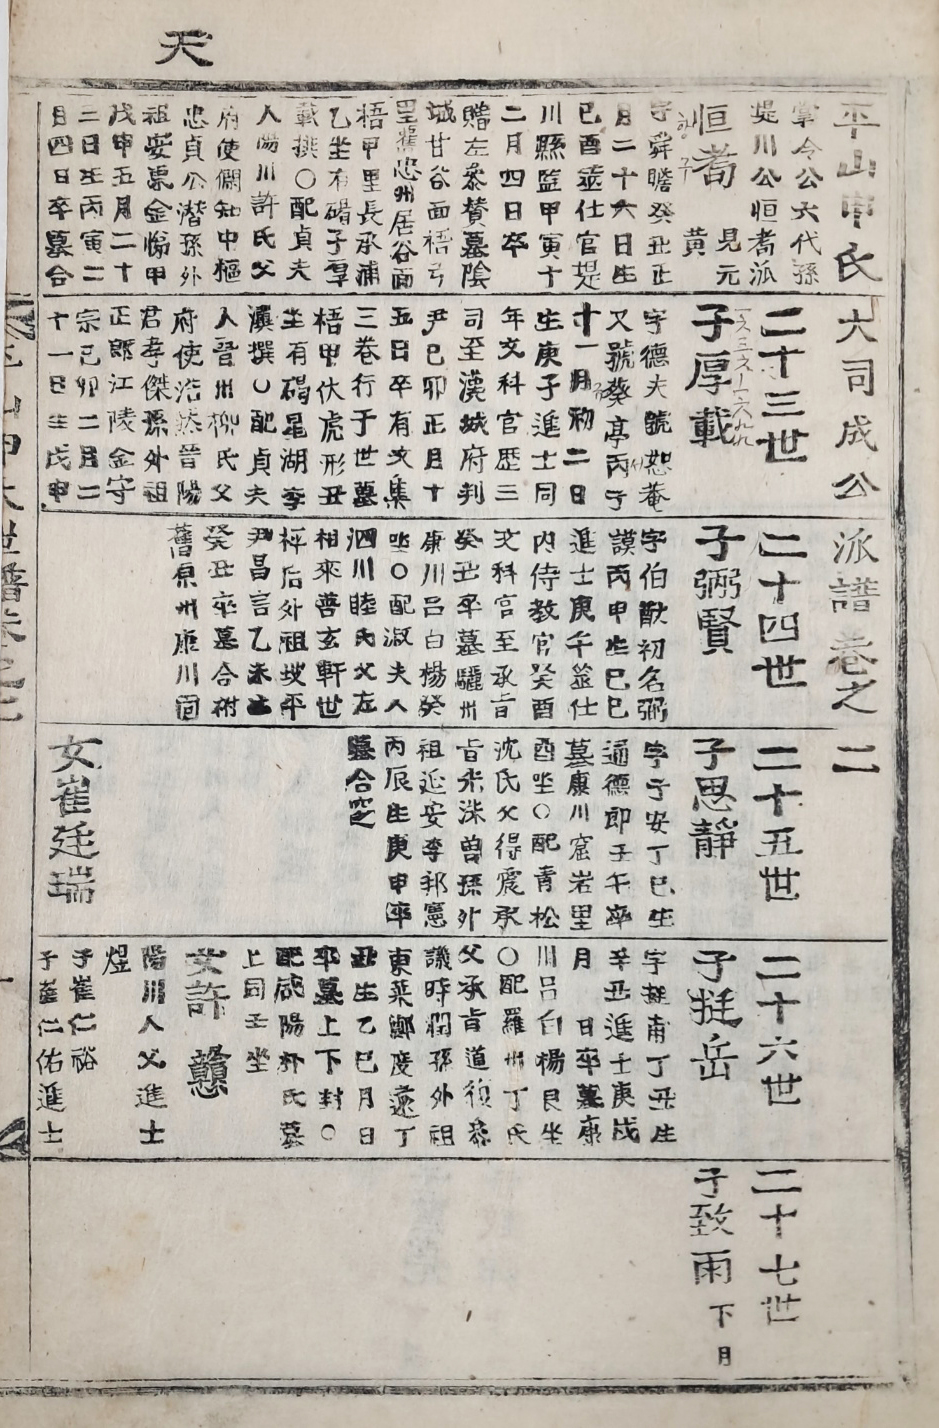 天
平山申氏大司成公派譜卷之二
掌令公六代孫
堤川公恒耈派
恒耈 見元
黃
字舜瞻癸丑正
月二十六日生
己酉蔭仕官堤
川縣監甲寅十
二月四日卒
贈左參贊墓陰
城甘谷面梧弓
里舊忠州居谷面
梧甲里長承浦
乙坐有碣子厚
載撰○配貞夫
人陽川許氏父
府使僩知中樞
忠貞公潛孫外
祖安東金惕甲
戊申五月二十
三日生丙寅二
月四日卒墓合
二十三世
子厚載
字德夫號恕菴
又號葵亭丙子
十一月初二日
生庚子進士同
年文科官歷三
司至漢城府判
尹己卯正月十
五日卒有文集
三卷行于世墓
梧甲伏虎形丑
坐有碣星湖李
瀷撰○配貞夫
人晉州柳氏父
府使浩然晉陽
君孝傑孫外祖
正郎江陵金守
宗己卯二月二
十一日生戊申
二十四世
子弼賢
字伯猷初名弼
謨丙申生己巳
進士庚午筮仕
內侍敎官癸酉
文科官至承旨
癸丑卒墓驪州
康川呂白楊癸
坐○配淑夫人
泗川睦氏父左
相來善玄軒世
枰后外祖坡平
尹昌言乙未生
癸丑卒墓合祔
舊原州康川面
二十五世
子思靜
字子安丁巳生
通德郎壬午卒
墓康川窟岩里
酉坐○配靑松
沈氏父得震承
旨光洙曾孫外
祖延安李邦憲
丙辰生庚申卒
墓合窆
女崔廷瑞
二十六世
子挺岳
字挺甫丁丑生
辛丑進士庚戌
月 日卒墓康
川呂白楊艮坐
○配羅州丁氏
父承旨道復參
議時潤孫外祖
東萊鄭度遠丁
丑生乙巳月日
卒墓上下封○
配咸陽朴氏墓
上同壬坐
女許 戇
陽川人父進士
煜
子崔仁裕
子崔仁佑進士
二十七世
子致雨 下月